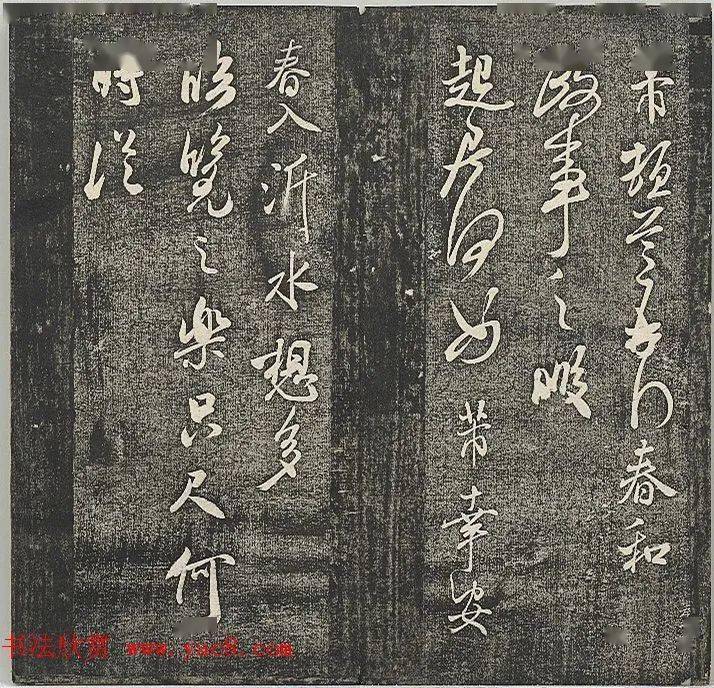 芾頓首春和
政事之暇
起居何如 芾幸安
春入沂水想多
臨覽之樂只尺何
時從
书法欣赏 www.yac8.com